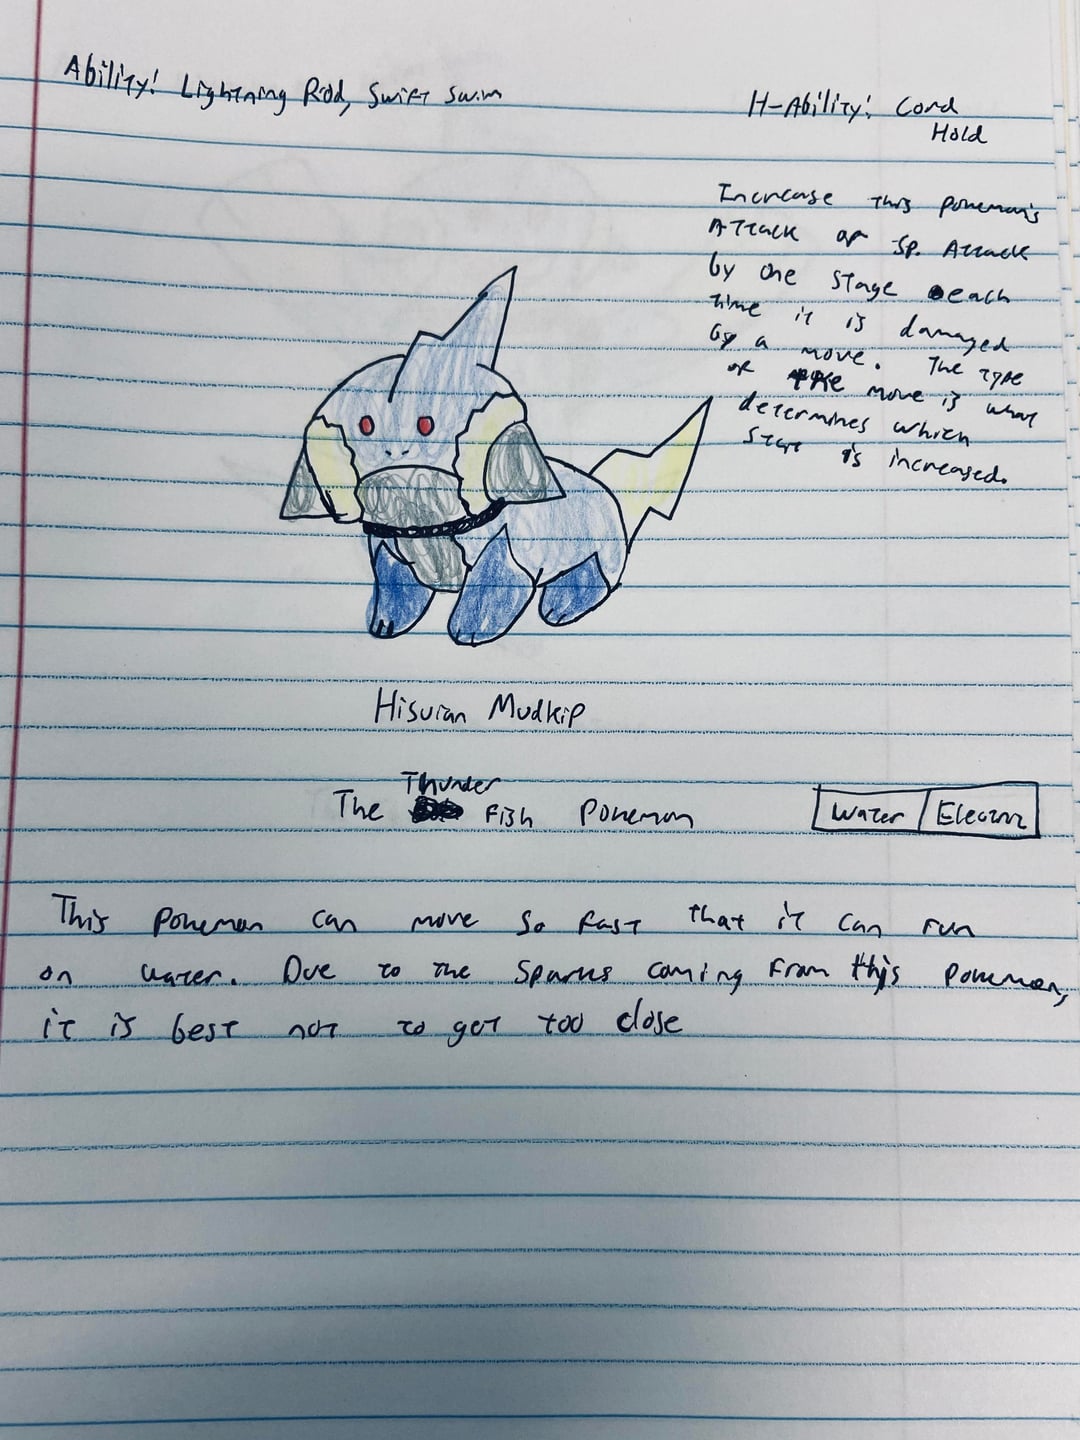 Ability: Lightning Rod, Swift Swim
H-Ability: Cord
Hold
Increase this pokemon's
Attack or Sp. Attack
by one stage each
time it is damaged
by a move. The type
of move is what
determines which
stat is increased.
Hisuian Mudkip
Thunder
The Fish Pokemon
Water Electric
This pokemon can move so fast that it can run
on water. Due to the sparks coming from this pokemon,
it is best not to get too close